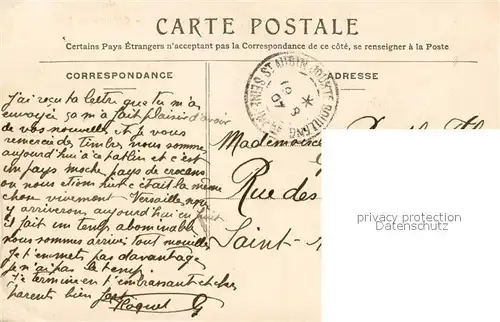 CARTE POSTALE
Certains Pays Étrangers n'acceptant pas la Correspondance de ce côté, se renseigner à la Poste
CORRESPONDANCE
ADRESSE
J'ai reçu ta lettre que tu m'a
envoyée ça m'a fait plaisir d'avoir
de vos nouvelles, et je vous
remercie de timbres nous somme
aujourd'hui à
et c'est
un pays moche pays de
ou nous etions hier c'était la même
chose vivement Versaille nous
y arriverons aujourd'hui en
il fait un temps abominable
nous sommes arrivé tout mouillé
Je t'en mets pas davantage
Je n'ai pas le temps.
Je termine en t'embrassant et chers
parents bien fort
Mademoiselle
Rue des
Saint-
ST AUBIN JOUXTE BOULLENG
SEINE
19 9
07
privacy protection
Datenschutz